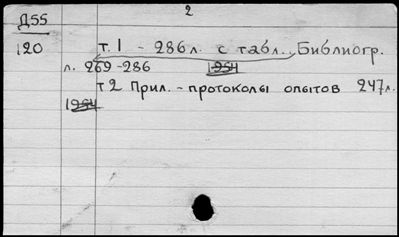 2
Д55
120 т. 1 - 286 л. с табл., Библиогр.
л. 269-286 1954
т 2 Прил. - протоколы опытов 247 л.
1954